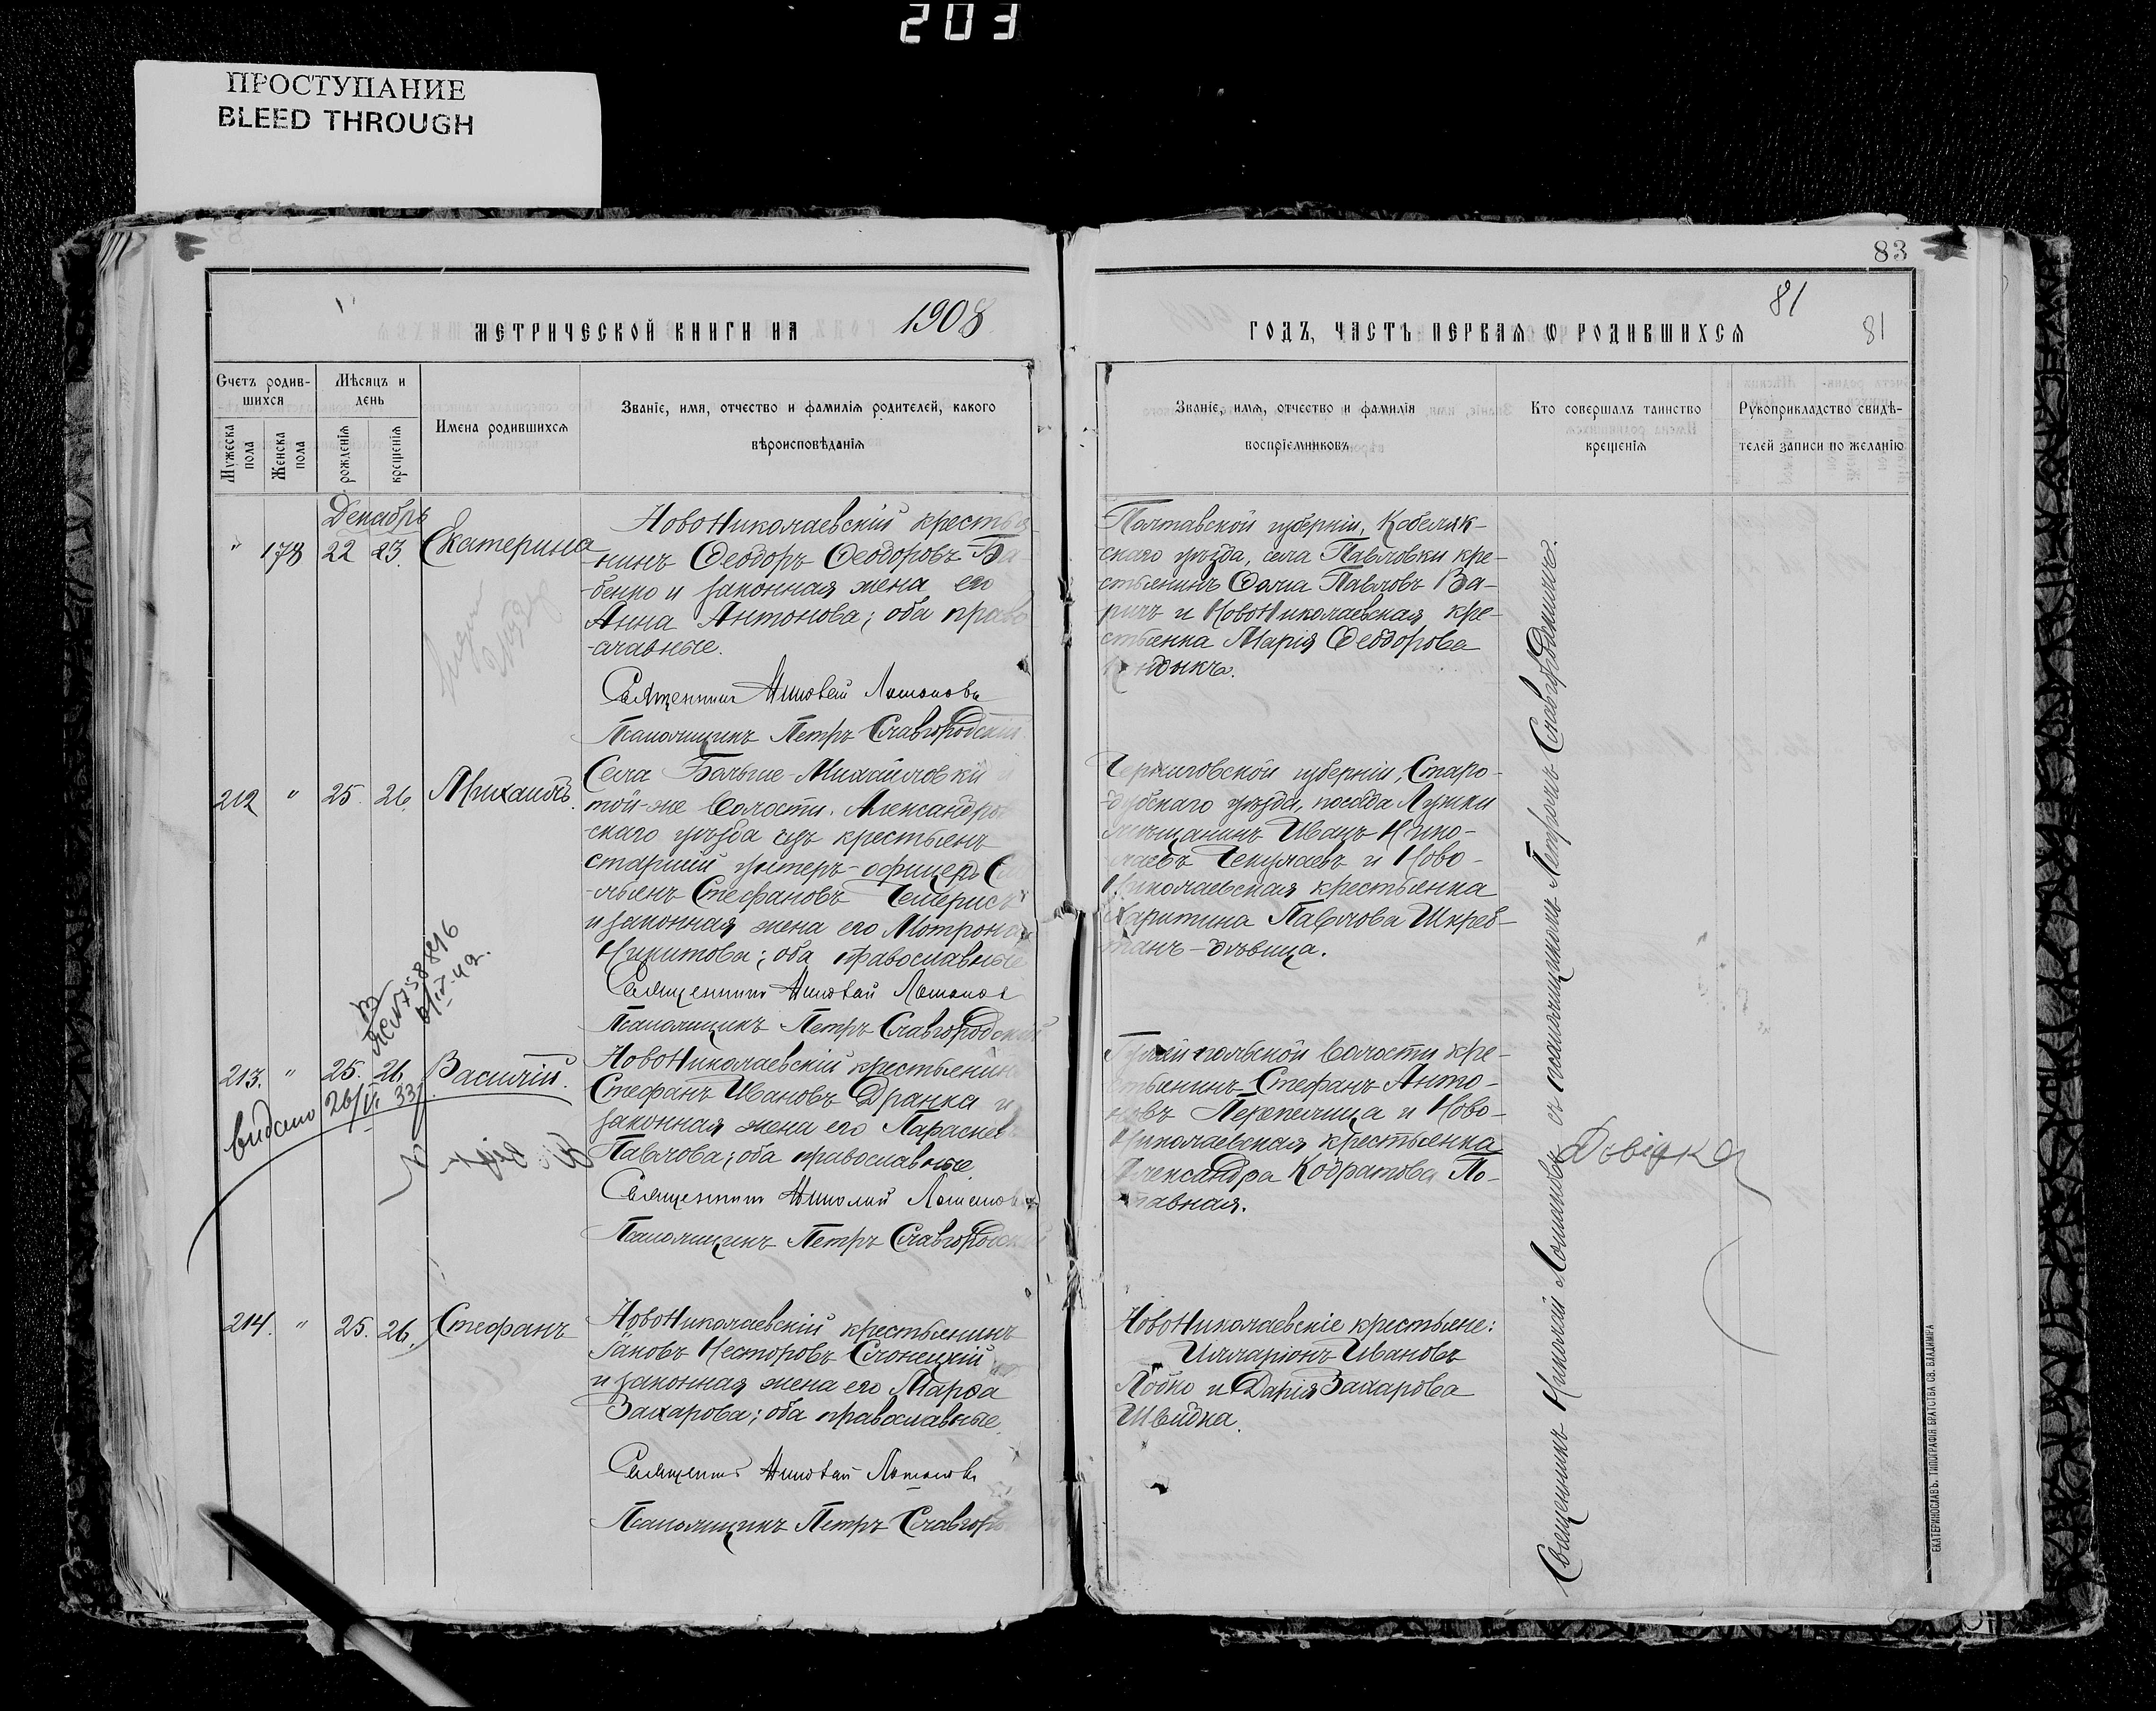 203
ПРОСТУПАНИЕ
BLEED THROUGH
83
81
81
МЕТРИЧЕСКОЙ КНИГИ НА 1908
ГОДЪ, ЧАСТЬ ПЕРВАЯ Ѡ РОДИВШИХСЯ
Счетъ родив-
шихся
Мужеска пола
Женска пола
Мѣсяцъ и
день
рожденія
крещенія
Имена родившихся
Званіе, имя, отчество и фамилія родителей, какого
вѣроисповѣданія
Званіе, имя, отчество и фамилія
воспріемниковъ
Кто совершалъ таинство
крещенія
Рукоприкладство свидѣ-
телей записи по желанію
Декабрь
" 178 22 23. Екатерина
НовоНиколаевскій крестья
-нинъ Ѳеодоръ Ѳеодоровъ Ба
-бенко и законная жена его
Анна Антонова; оба право
-славные.
Священникъ Николай Лошаковъ
Псаломщикъ Петръ Славгородскій
Полтавской губерніи, Кобеляк-
скаго уѣзда, села Павловки кре-
стьянинъ Ѳома Павловъ Ва-
ричъ и НовоНиколаевская кре-
стьянка Марія Ѳеодорова
212 " 25. 26. Михаилъ.
Села Больше-Михайловки
той-же волости. Александров
скаго уѣзда изъ крестьянъ
старшій унтеръ-офицеръ
-льянъ Стефановъ
и законная жена его Мотрона
Никитова; оба православные
Священникъ Николай Лошаковъ
Псаломщикъ Петръ Славгородскій
Черниговской губерніи, Старо-
-дубскаго уѣзда, посада Лужки
мѣщанинъ Иванъ Нико-
лаевъ Чекулаевъ и Ново-
Николаевская крестьянка
Харитина Павлова Шкреб-
танъ-дѣвица.
213. " 25. 26. Василій.
видано 26/VI 33
НовоНиколаевскій крестьянинъ
Стефанъ Ивановъ Дранка и
законная жена его Параскева
Павлова; оба православные
Священникъ Николай Лошаковъ
Псаломщикъ Петръ Славгородскій
Гуляйпольской волости кре-
стьянинъ Стефанъ Анто-
новъ Перепелица и Ново-
Николаевская крестьянка
Александра Кодратова По-
лтавная.
Довідка
214. " 25. 26. Стефанъ
НовоНиколаевскій крестьянинъ
Іаковъ Несторовъ Слонецкій
и законная жена его Марѳа
Захарова; оба православные.
Священникъ Николай Лошаковъ
Псаломщикъ Петръ Славгоро
НовоНиколаевскіе крестьяне:
Илларіонъ Ивановъ
Лобко и Дарія Захарова
Швидка.
Священникъ Николай Лошаковъ съ псаломщикомъ Петромъ Славгородскимъ.
ЕКАТЕРИНОСЛАВЪ. ТИПОГРАФІЯ БРАТСТВА СВ. ВЛАДИМІРА